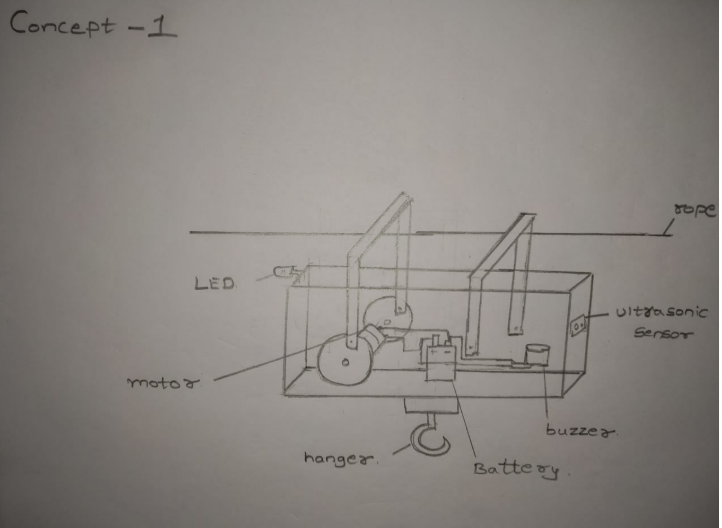 Concept - 1
rope
LED
ultrasonic
sensor
motor
buzzer.
hanger.
Battery.